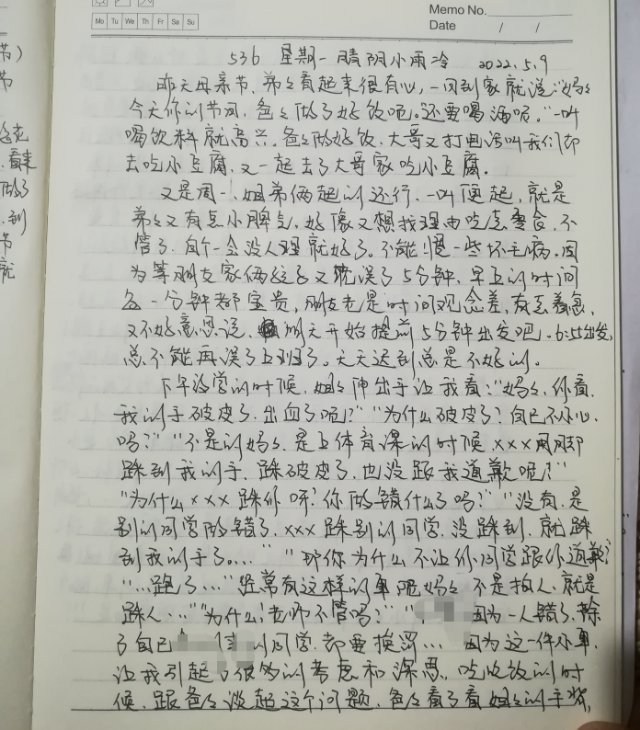 Memo No.
Mo Tu We Th Fr Sa Su
Date / /
536 星期一 晴阴小雨冷 2022.5.9
昨天母亲节,弟々看起来很有心,一回到家就说:"妈々
今天你的节日,爸々做了好饭吧。还要喝酒呢。"一叫
喝饮料就高兴。爸々做好饭,大哥又打电话叫我们都
去吃小豆腐,又一起去了大哥家吃小豆腐。
又是周一,姐弟俩起的还行,一叫便起,就是
弟々又有点小脾气,好像又想找理由吃点零食,不
管了,自个一会没人理就好了。不能惯一些坏毛病。因
为等朋友家俩孩子又耽误了5分钟,早上的时间
每一分钟都宝贵,朋友老是时间观念差,有点着急,
又不好意思说,明天开始提前5分钟出发吧。6:55出发,
总不能再误了上班了。天天迟到总是不好的。
下午放学的时候,姐々伸出手让我看:"妈々,你看,
我的手破皮了,出血了呢!""为什么破皮了?自己不小心
吗?""不是的妈々,是上体育课的时候,xxx用脚
踩到我的手,踩破皮了,也没跟我道歉呢!"
"为什么xxx踩你呀?你做错什么了吗?""没有,是
别的同学做错了,xxx踩别的同学,没踩到,就踩
到我的手了...." "那你为什么不让你同学跟你道歉?
"...跑了..."经常有这样的事呢妈々,不是拍人,就是
踩人..""为什么!老师不管吗?" " 因为一人错了,除
了自己 的同学,都要挨罚... 因为这一件小事,
让我引起了很多的考虑和深思。吃晚饭的时
候,跟爸々谈起这个问题,爸々看了看姐々的手背,
节)
节
看来
做了
到
节
就